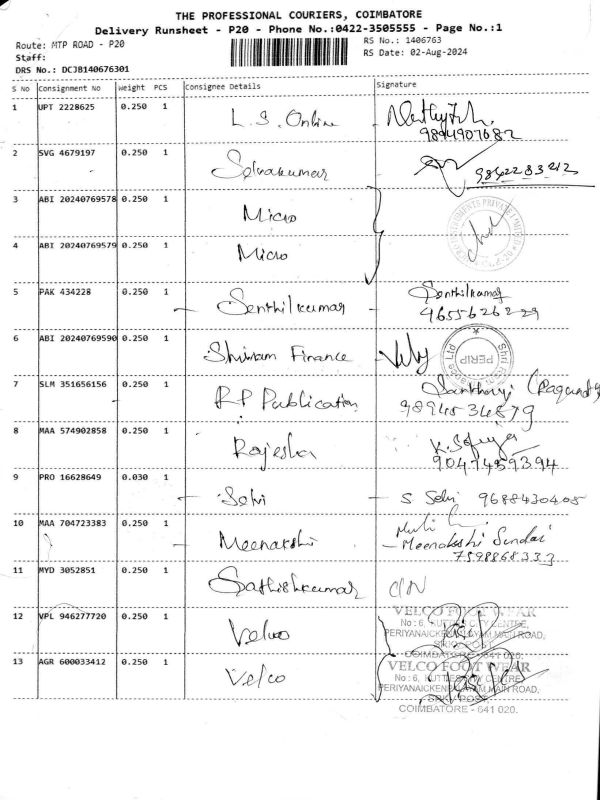 THE PROFESSIONAL COURIERS, COIMBATORE
Delivery Runsheet - P20 - Phone No.:0422-3505555 - Page No.:1
Route: MTP ROAD - P20
RS No.: 1406763
Staff:
RS Date: 02-Aug-2024
DRS No.: DCJB140676301
S No Consignment No Weight PCS Consignee Details Signature
1 UPT 2228625 0.250 1 L.S. Online
9894907682
2 SVG 4679197 0.250 1 Selvakumar 9862283212
3 ABI 20240769578 0.250 1 Micro
4 ABI 20240769579 0.250 1 Micro
5 PAK 434228 0.250 1 Senthilkumar Senthilkumar
9655626229
6 ABI 20240769590 0.250 1 Shriram Finance
PERIP
7 SLM 351656156 0.250 1 RP Publication
9894534879
8 MAA 574902858 0.250 1 Rajesha
9047459394
9 PRO 16628649 0.030 1 Selvi S Selvi 9688430405
10 MAA 704723383 0.250 1 Meenakshi Meenakshi Sundar
7598868333
11 MYD 3052851 0.250 1 Sathishkumar
12 VPL 946277720 0.250 1 Velco
VELCO FOOT WEAR
No:6, CITY CENTRE,
MAIN ROAD,
COIMBATORE - 641 020.
13 AGR 600033412 0.250 1 Velco
VELCO FOOT WEAR
No:6, CITY CENTRE,
MAIN ROAD,
SRKV POST,
COIMBATORE - 641 020.